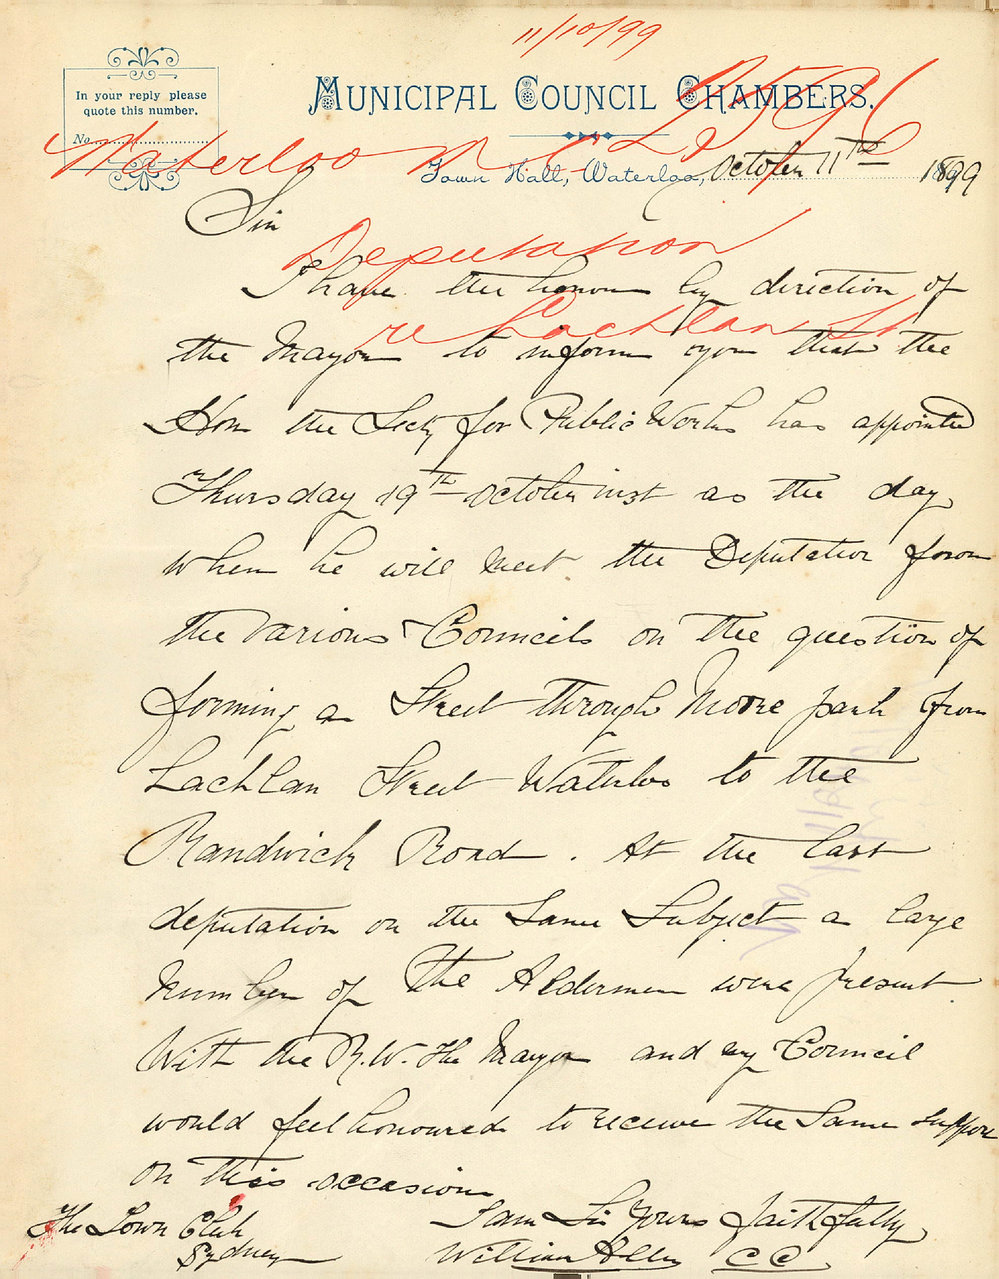 11/10/99
In your reply please
quote this number.
No.
MUNICIPAL COUNCIL CHAMBERS.
2596
Waterloo B C
Town Hall, Waterloo, October 11th 1899
Sir
Deputation
I have the honour by direction of
re Lachlan St
the Mayor to inform you that the
Hon the Secty for Public Works has appointed
Thursday 19th October inst as the day
when he will meet the Deputation from
the various Councils on the question of
forming a Street through Moore park from
Lachlan Street Waterloo to the
Randwick Road. At the last
deputation on the Same Subject a large
Number of The Aldermen were present
With the R.W. The Mayor and my Council
would feel honoured to receive the Same support
on this occasion
I am Sir Yours faithfully
The Town Clerk
Sydney
William CC